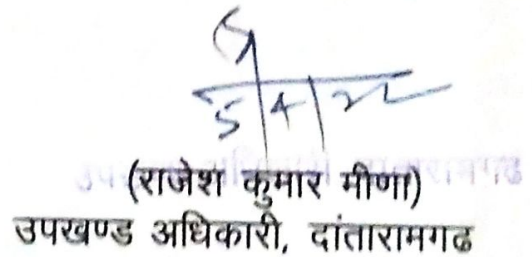 5/4/22
(राजेश कुमार मीणा)
उपखण्ड अधिकारी, दांतारामगढ